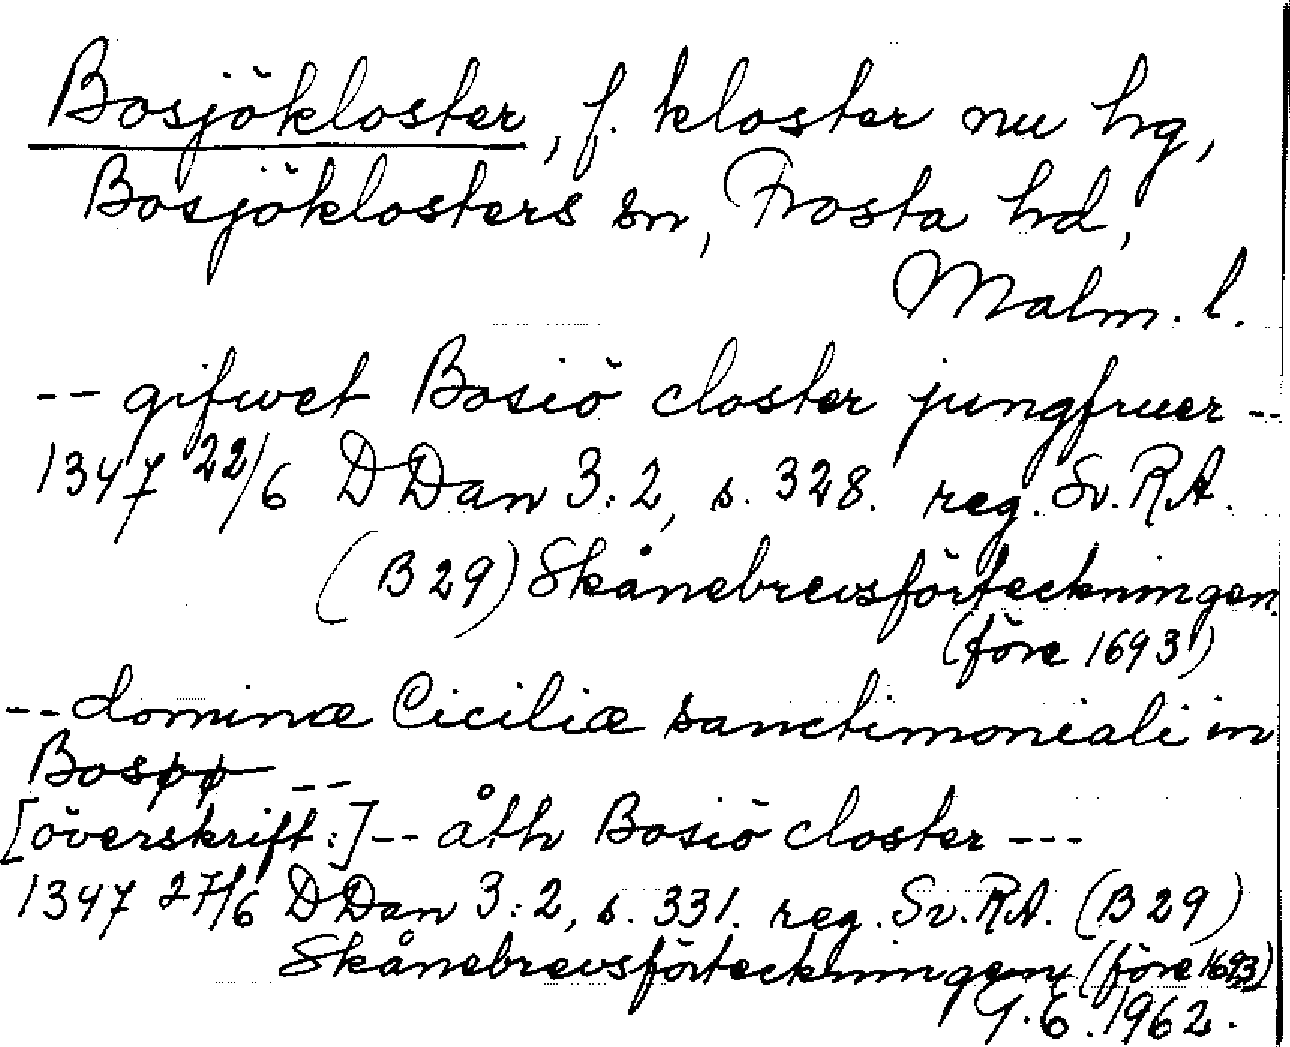 Bosjökloster, f. kloster nu hg,
Bosjöklosters sn, Frosta hd,
Malm. l.
-- gifwet Bosiö closter jungfruer --
1347 22/6 DDan 3:2, s. 328. reg. Sv. RA.
(B 29) Skånebrevsförteckningen
(före 1693)
-- dominæ Ciciliæ sanctimoniali in
Bosøø --
[överskrift:] -- åth Bosiö closter ---
1347 27/6 DDan 3:2, s. 331. reg. Sv. RA. (B 29)
Skånebrevsförteckningen (före 1693)
G.E. 1962.